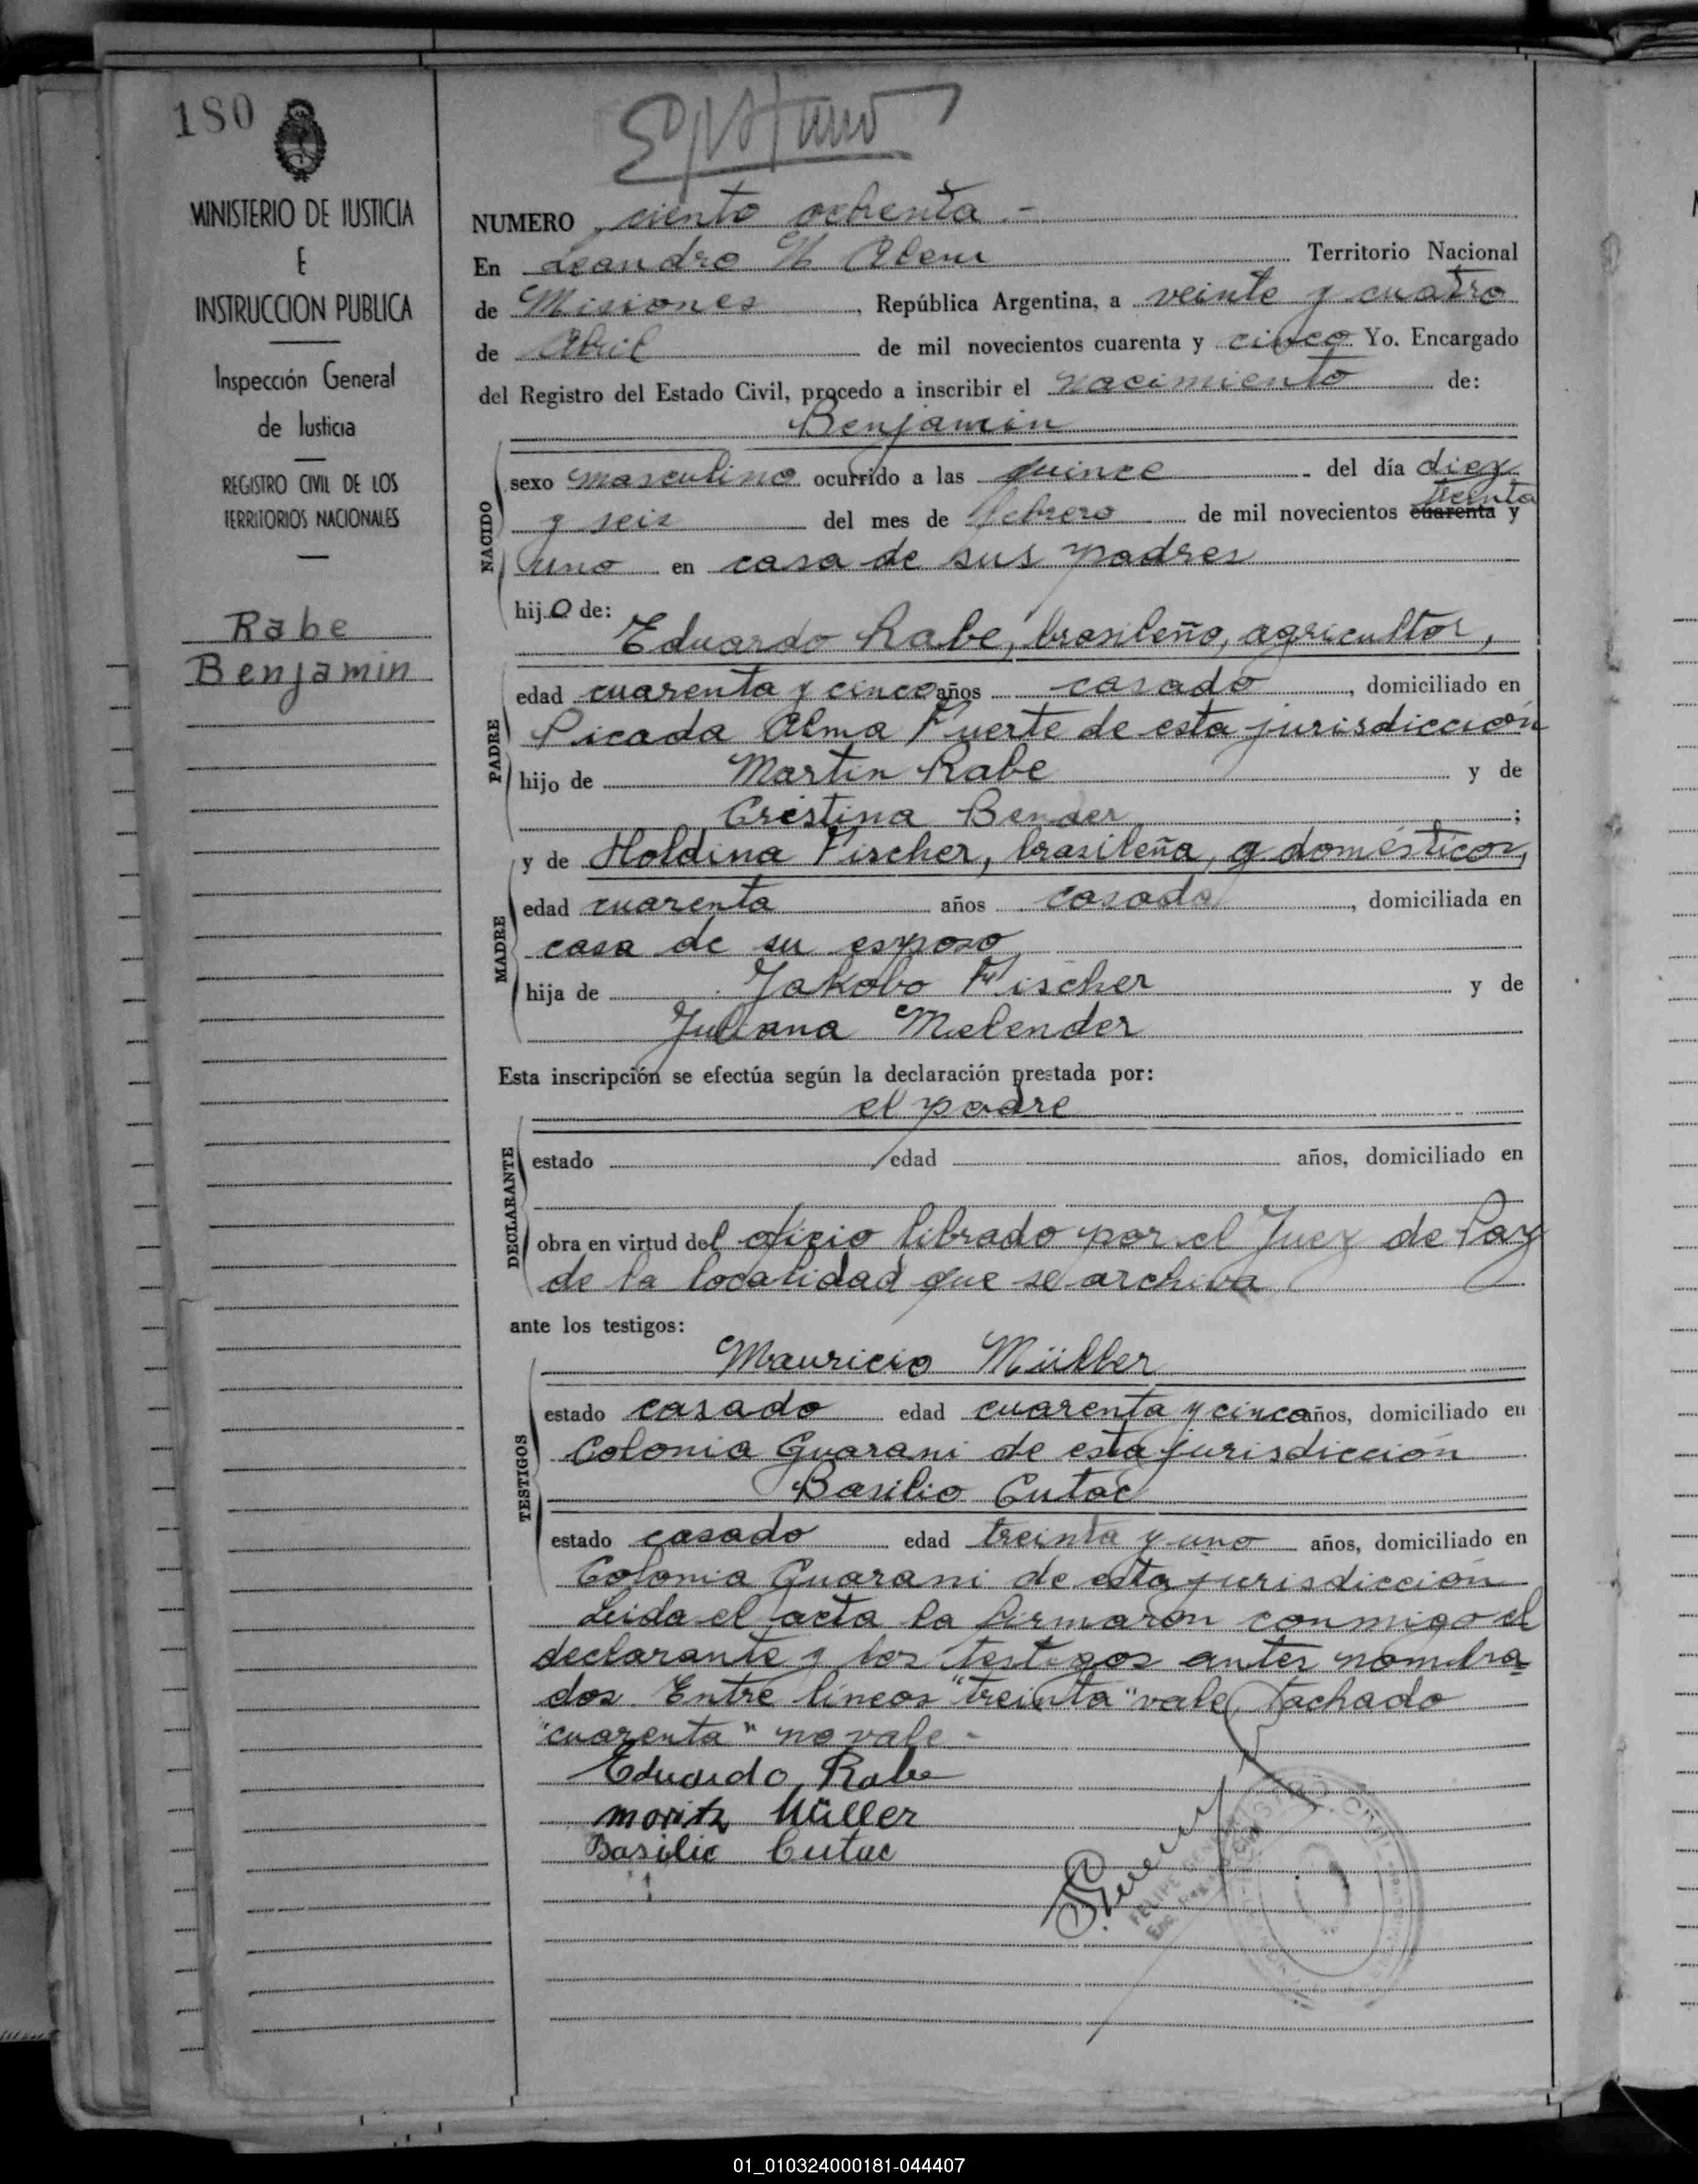 180
MINISTERIO DE JUSTICIA
E
INSTRUCCION PUBLICA
Inspección General
de Justicia
REGISTRO CIVIL DE LOS
TERRITORIOS NACIONALES
Rabe
Benjamin
NUMERO ciento ochenta.-
En Leandro N Alem Territorio Nacional
de Misiones, República Argentina, a veinte y cuatro
de Abril de mil novecientos cuarenta y cinco Yo. Encargado
del Registro del Estado Civil, procedo a inscribir el nacimiento de:
Benjamin
NACIDO
sexo masculino ocurrido a las quince del día diez
treinta
y seis del mes de febrero de mil novecientos cuarenta y
uno en casa de sus padres
hijo de:
Eduardo Rabe, brasileño, agricultor,
PADRE
edad cuarenta y cinco años casado, domiciliado en
Picada Alma Fuerte de esta jurisdicción
hijo de Martin Rabe y de
Cristina Bender;
MADRE
y de Holdina Fischer, brasileña, q domésticos,
edad cuarenta años casada, domiciliada en
casa de su esposo
hija de Jakobo Fischer y de
Juliana Melender
Esta inscripción se efectúa según la declaración prestada por:
el padre
DECLARANTE
estado edad años, domiciliado en
obra en virtud del oficio librado por el Juez de Paz
de la localidad que se archiva
ante los testigos:
TESTIGOS
Mauricio Müller
estado casado edad cuarenta y cinco años, domiciliado en
Colonia Guarani de esta jurisdicción
Basilio Cutac
estado casado edad treinta y uno años, domiciliado en
Colonia Guarani de esta jurisdicción
Leida el acta la firmaron conmigo el
declarante y los testigos antes nombra
dos. Entre lineas "treinta" vale, tachado
"cuarenta" no vale-
Eduardo Rabe
Moritz Müller
Basilio Cutac
FELIPE
01_010324000181-044407